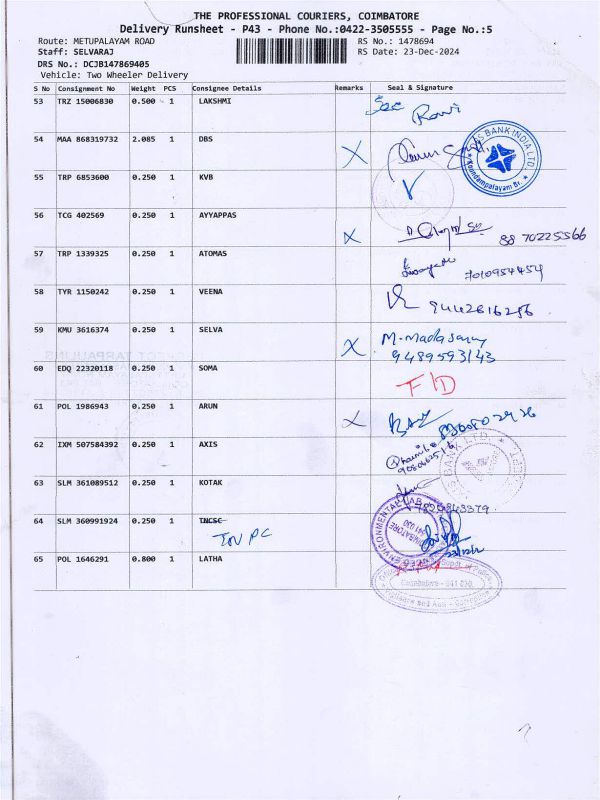 THE PROFESSIONAL COURIERS, COIMBATORE
Delivery Runsheet - P43 - Phone No.:0422-3505555 - Page No.:5
Route: METUPALAYAM ROAD RS No.: 1478694
Staff: SELVARAJ RS Date: 23-Dec-2024
DRS No.: DCJB147869405
Vehicle: Two Wheeler Delivery
S No Consignment No Weight PCS Consignee Details Remarks Seal & Signature
53 TRZ 15006830 0.500 1 LAKSHMI
Ravi
54 MAA 868319732 2.085 1 DBS X
DBS BANK INDIA LTD.
Koundampalayam Br.
55 TRP 6853600 0.250 1 KVB
56 TCG 402569 0.250 1 AYYAPPAS X
88 70225566
57 TRP 1339325 0.250 1 ATOMAS
7010954454
58 TYR 1150242 0.250 1 VEENA
9442616256
59 KMU 3616374 0.250 1 SELVA X
M. Madasamy
9489593143
60 EDQ 22320118 0.250 1 SOMA
F/D
61 POL 1986943 0.250 1 ARUN X
62 IXM 507584392 0.250 1 AXIS
63 SLM 361089512 0.250 1 KOTAK
64 SLM 360991924 0.250 1 TNCSC
TNPC
ENVIRONMENTAL LAB
65 POL 1646291 0.800 1 LATHA
Coimbatore - 641 030